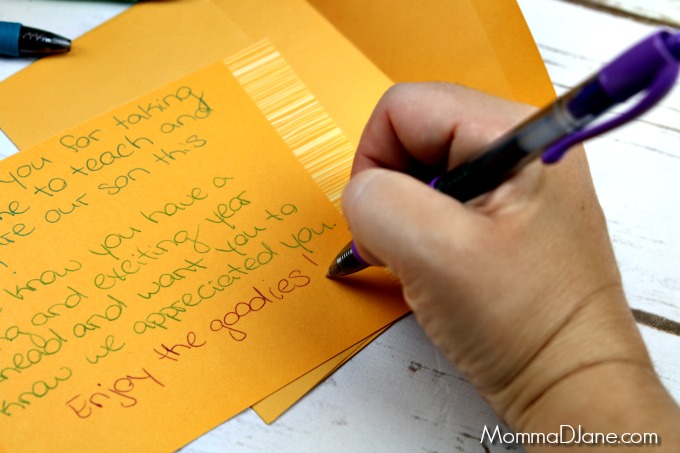 you for taking
me to teach and
re our son this
know you have a
ng and exciting year
head and want you to
know we appreciated you.
Enjoy the goodies!
MommaDJane.com